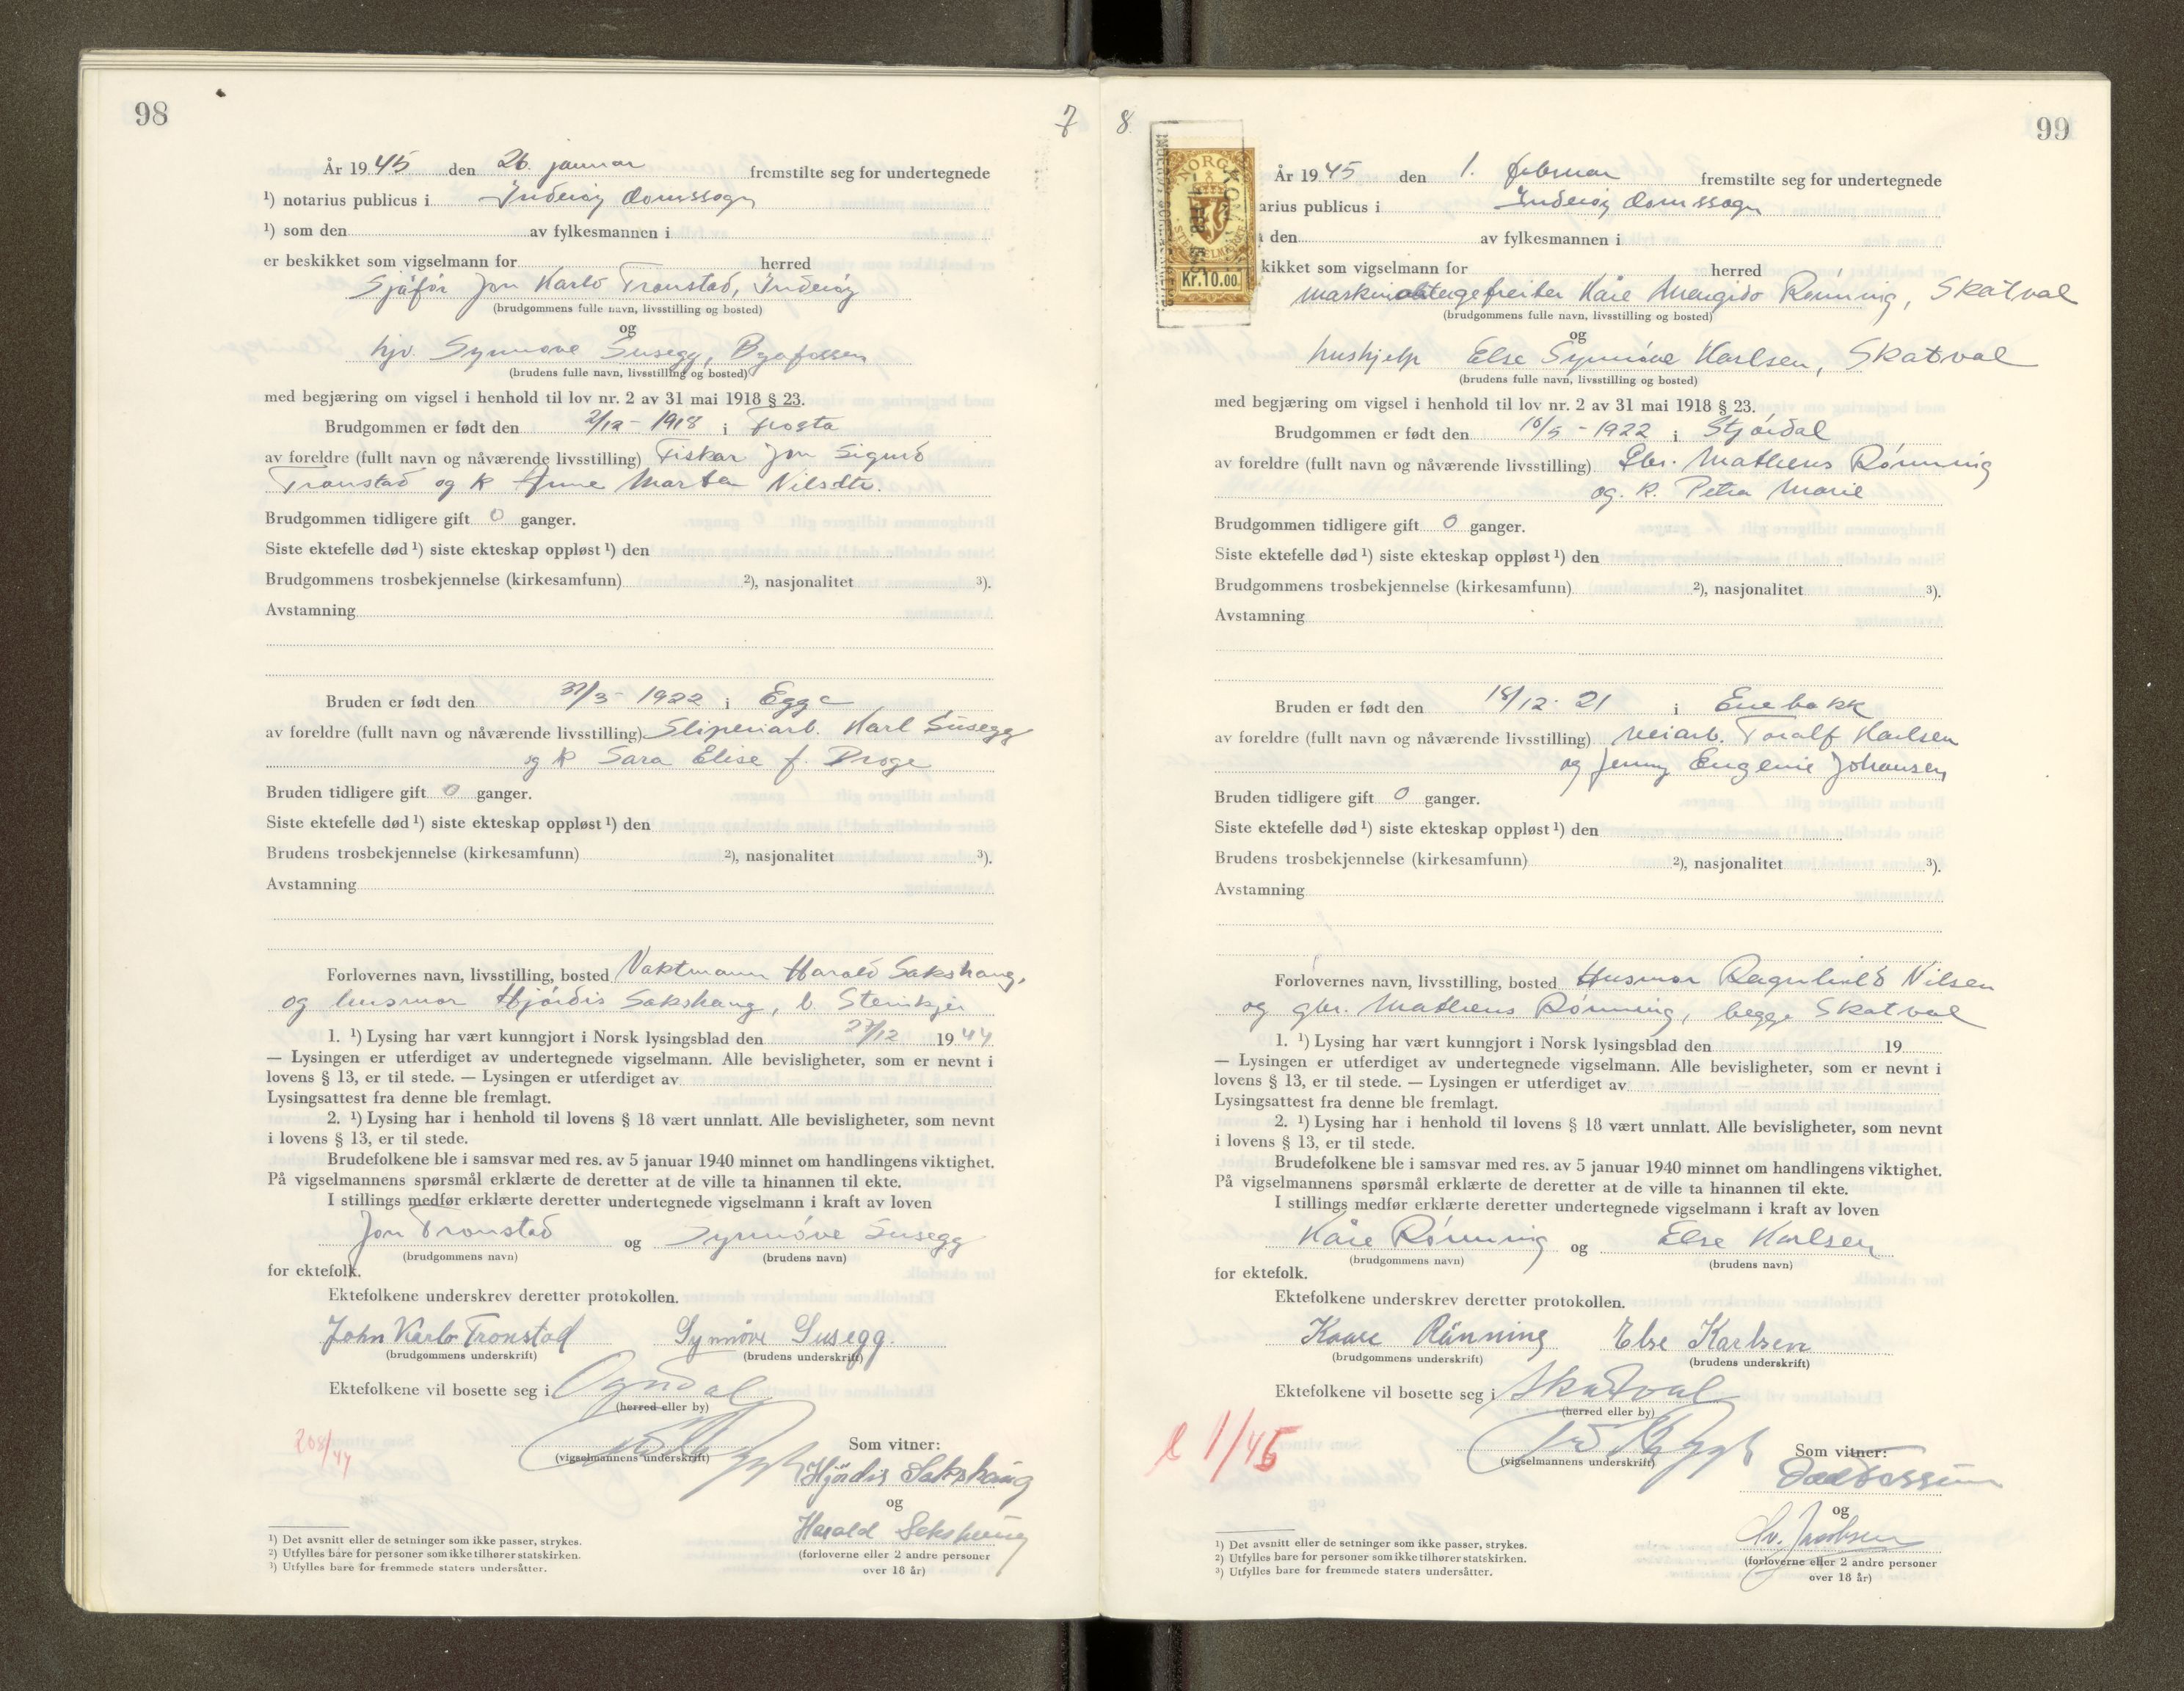 98
7
År 1945 den 26. januar fremstilte seg for undertegnede
¹) notarius publicus i Inderøy domssogn
¹) som den av fylkesmannen i
er beskikket som vigselmann for herred
Sjåfør Jon Karlo Tronstad, Inderøy
(brudgommens fulle navn, livsstilling og bosted)
og
hjv. Synnøve Susegg, Byafossen
(brudens fulle navn, livsstilling og bosted)
med begjæring om vigsel i henhold til lov nr. 2 av 31 mai 1918 § 23.
Brudgommen er født den 2/12 - 1918 i Frosta
av foreldre (fullt navn og nåværende livsstilling) Fisker Jon Sigurd
Tronstad og k Anne Marta Nilsdtr.
Brudgommen tidligere gift 0 ganger.
Siste ektefelle død ¹) siste ekteskap oppløst ¹) den
Brudgommens trosbekjennelse (kirkesamfunn) ²), nasjonalitet ³).
Avstamning
Bruden er født den 31/3 - 1922 i Egge
av foreldre (fullt navn og nåværende livsstilling) Sliperiarb. Karl Susegg
og k Sara Elise f. Proge
Bruden tidligere gift 0 ganger.
Siste ektefelle død ¹) siste ekteskap oppløst ¹) den
Brudens trosbekjennelse (kirkesamfunn) ²), nasjonalitet ³).
Avstamning
Forlovernes navn, livsstilling, bosted Vaktmann Harald Sakshaug,
og husmor Hjørdis Sakshaug, b. Steinkjer
1. ¹) Lysing har vært kunngjort i Norsk lysingsblad den 27/12 1944
— Lysingen er utferdiget av undertegnede vigselmann. Alle bevisligheter, som er nevnt i
lovens § 13, er til stede. — Lysingen er utferdiget av
Lysingsattest fra denne ble fremlagt.
2. ¹) Lysing har i henhold til lovens § 18 vært unnlatt. Alle bevisligheter, som nevnt
i lovens § 13, er til stede.
Brudefolkene ble i samsvar med res. av 5 januar 1940 minnet om handlingens viktighet.
På vigselmannens spørsmål erklærte de deretter at de ville ta hinannen til ekte.
I stillings medfør erklærte deretter undertegnede vigselmann i kraft av loven
Jon Tronstad og Synnøve Susegg
(brudgommens navn) (brudens navn)
for ektefolk.
Ektefolkene underskrev deretter protokollen.
John Karlo Tronstad Synnøve Susegg.
(brudgommens underskrift) (brudens underskrift)
Ektefolkene vil bosette seg i Ogndal
(herred eller by)
208/44
(vigselmannens underskrift)
Som vitner:
Hjördis Sakshaug
og
Harald Sakshaug
(forloverne eller 2 andre personer
over 18 år)
¹) Det avsnitt eller de setninger som ikke passer, strykes.
²) Utfylles bare for personer som ikke tilhører statskirken.
³) Utfylles bare for fremmede staters undersåtter.
8.
99
NORGE
Kr.10.00
År 1945 den 1. februar fremstilte seg for undertegnede
arius publicus i Inderøy domssogn
den av fylkesmannen i
kikket som vigselmann for herred
maskinobergefreiter Kåre Rønning, Skatval
(brudgommens fulle navn, livsstilling og bosted)
og
hushjelp Else Synnøve Karlsen, Skatval
(brudens fulle navn, livsstilling og bosted)
med begjæring om vigsel i henhold til lov nr. 2 av 31 mai 1918 § 23.
Brudgommen er født den 16/5 - 1922 i Stjørdal
av foreldre (fullt navn og nåværende livsstilling) Gbr. Matheus Rønning
og. k. Petra Marie
Brudgommen tidligere gift 0 ganger.
Siste ektefelle død ¹) siste ekteskap oppløst ¹) den
Brudgommens trosbekjennelse (kirkesamfunn) ²), nasjonalitet ³).
Avstamning
Bruden er født den 18/12. 21 i Enebakk
av foreldre (fullt navn og nåværende livsstilling) veiarb. Toralf Karlsen
og Jenny Eugenie Johansen
Bruden tidligere gift 0 ganger.
Siste ektefelle død ¹) siste ekteskap oppløst ¹) den
Brudens trosbekjennelse (kirkesamfunn) ²), nasjonalitet ³).
Avstamning
Forlovernes navn, livsstilling, bosted Husmor Ragnhild Nilsen
og gbr. Matheus Rønning, begge Skatval
1. ¹) Lysing har vært kunngjort i Norsk lysingsblad den 19
— Lysingen er utferdiget av undertegnede vigselmann. Alle bevisligheter, som er nevnt i
lovens § 13, er til stede. — Lysingen er utferdiget av
Lysingsattest fra denne ble fremlagt.
2. ¹) Lysing har i henhold til lovens § 18 vært unnlatt. Alle bevisligheter, som nevnt
i lovens § 13, er til stede.
Brudefolkene ble i samsvar med res. av 5 januar 1940 minnet om handlingens viktighet.
På vigselmannens spørsmål erklærte de deretter at de ville ta hinannen til ekte.
I stillings medfør erklærte deretter undertegnede vigselmann i kraft av loven
Kåre Rønning og Else Karlsen
(brudgommens navn) (brudens navn)
for ektefolk.
Ektefolkene underskrev deretter protokollen.
Kaare Rønning Else Karlsen
(brudgommens underskrift) (brudens underskrift)
Ektefolkene vil bosette seg i Skatval
(herred eller by)
l 1/45
(vigselmannens underskrift)
Som vitner:
og
Jacobsen
(forloverne eller 2 andre personer
over 18 år)
¹) Det avsnitt eller de setninger som ikke passer, strykes.
²) Utfylles bare for personer som ikke tilhører statskirken.
³) Utfylles bare for fremmede staters undersåtter.